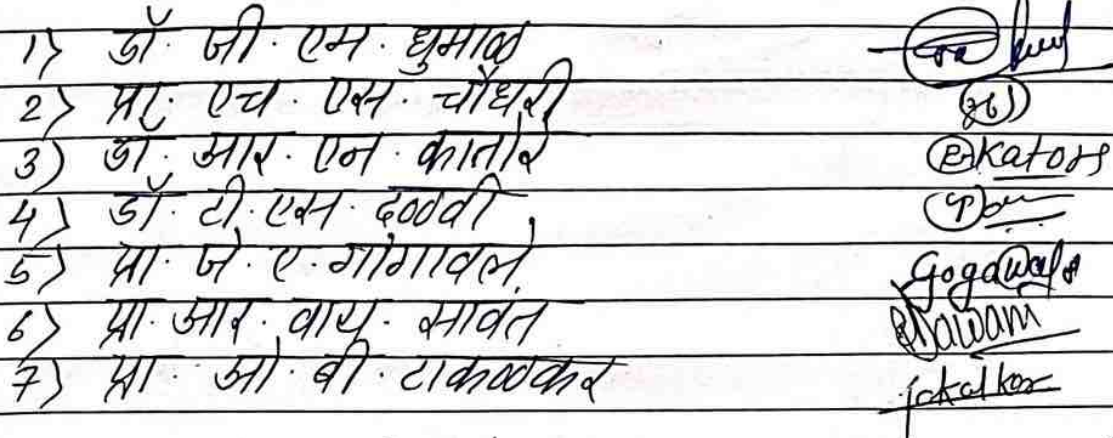 1) डॉ. जी. एम. धुमाळ
2) प्रा. एच. एस. चौधरी
3) डॉ. आर. एन. कातोरे Katore
4) डॉ. टी. एस. दळवी
5) प्रा. जे. ए. गोगावले. Gogawale
6) प्रा. आर. वाय. सावंत Sawant
7) प्रा. ओ. बी. टाकळकर